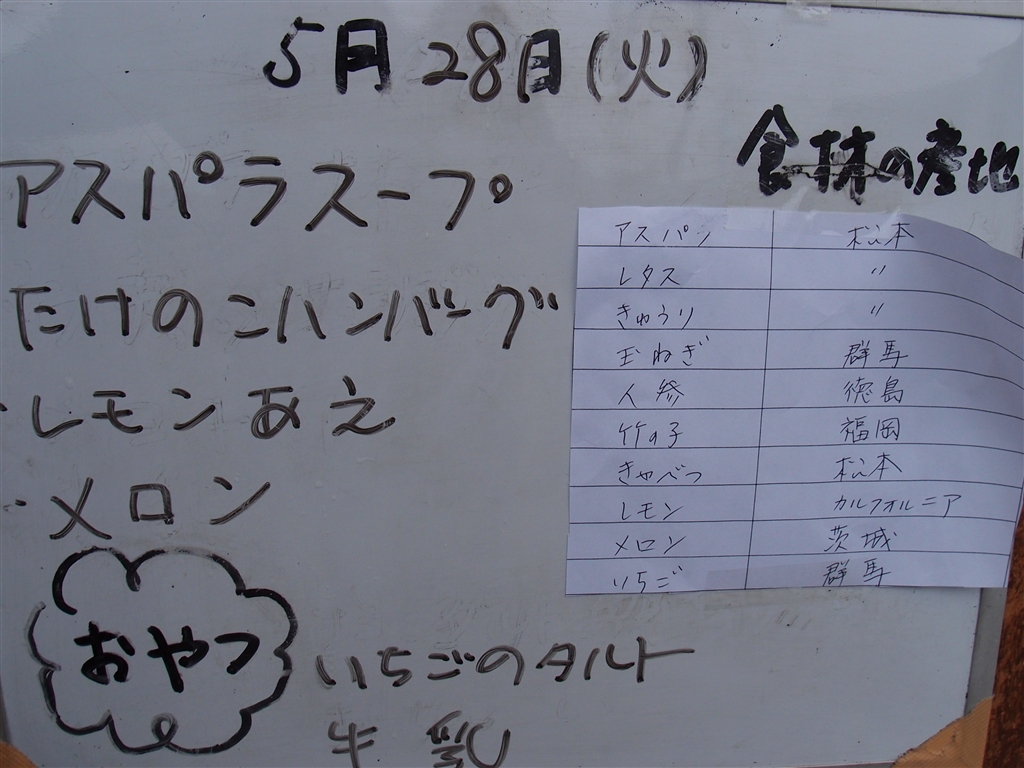 5月28日(火)
アスパラスープ
たけのこハンバーグ
・レモンあえ
・メロン
食材の産地
アスパラ 松本
レタス 〃
きゅうり 〃
玉ねぎ 群馬
人参 徳島
竹の子 福岡
きゃべつ 松本
レモン カルフォルニア
メロン 茨城
いちご 群馬
おやつ
いちごのタルト
牛乳